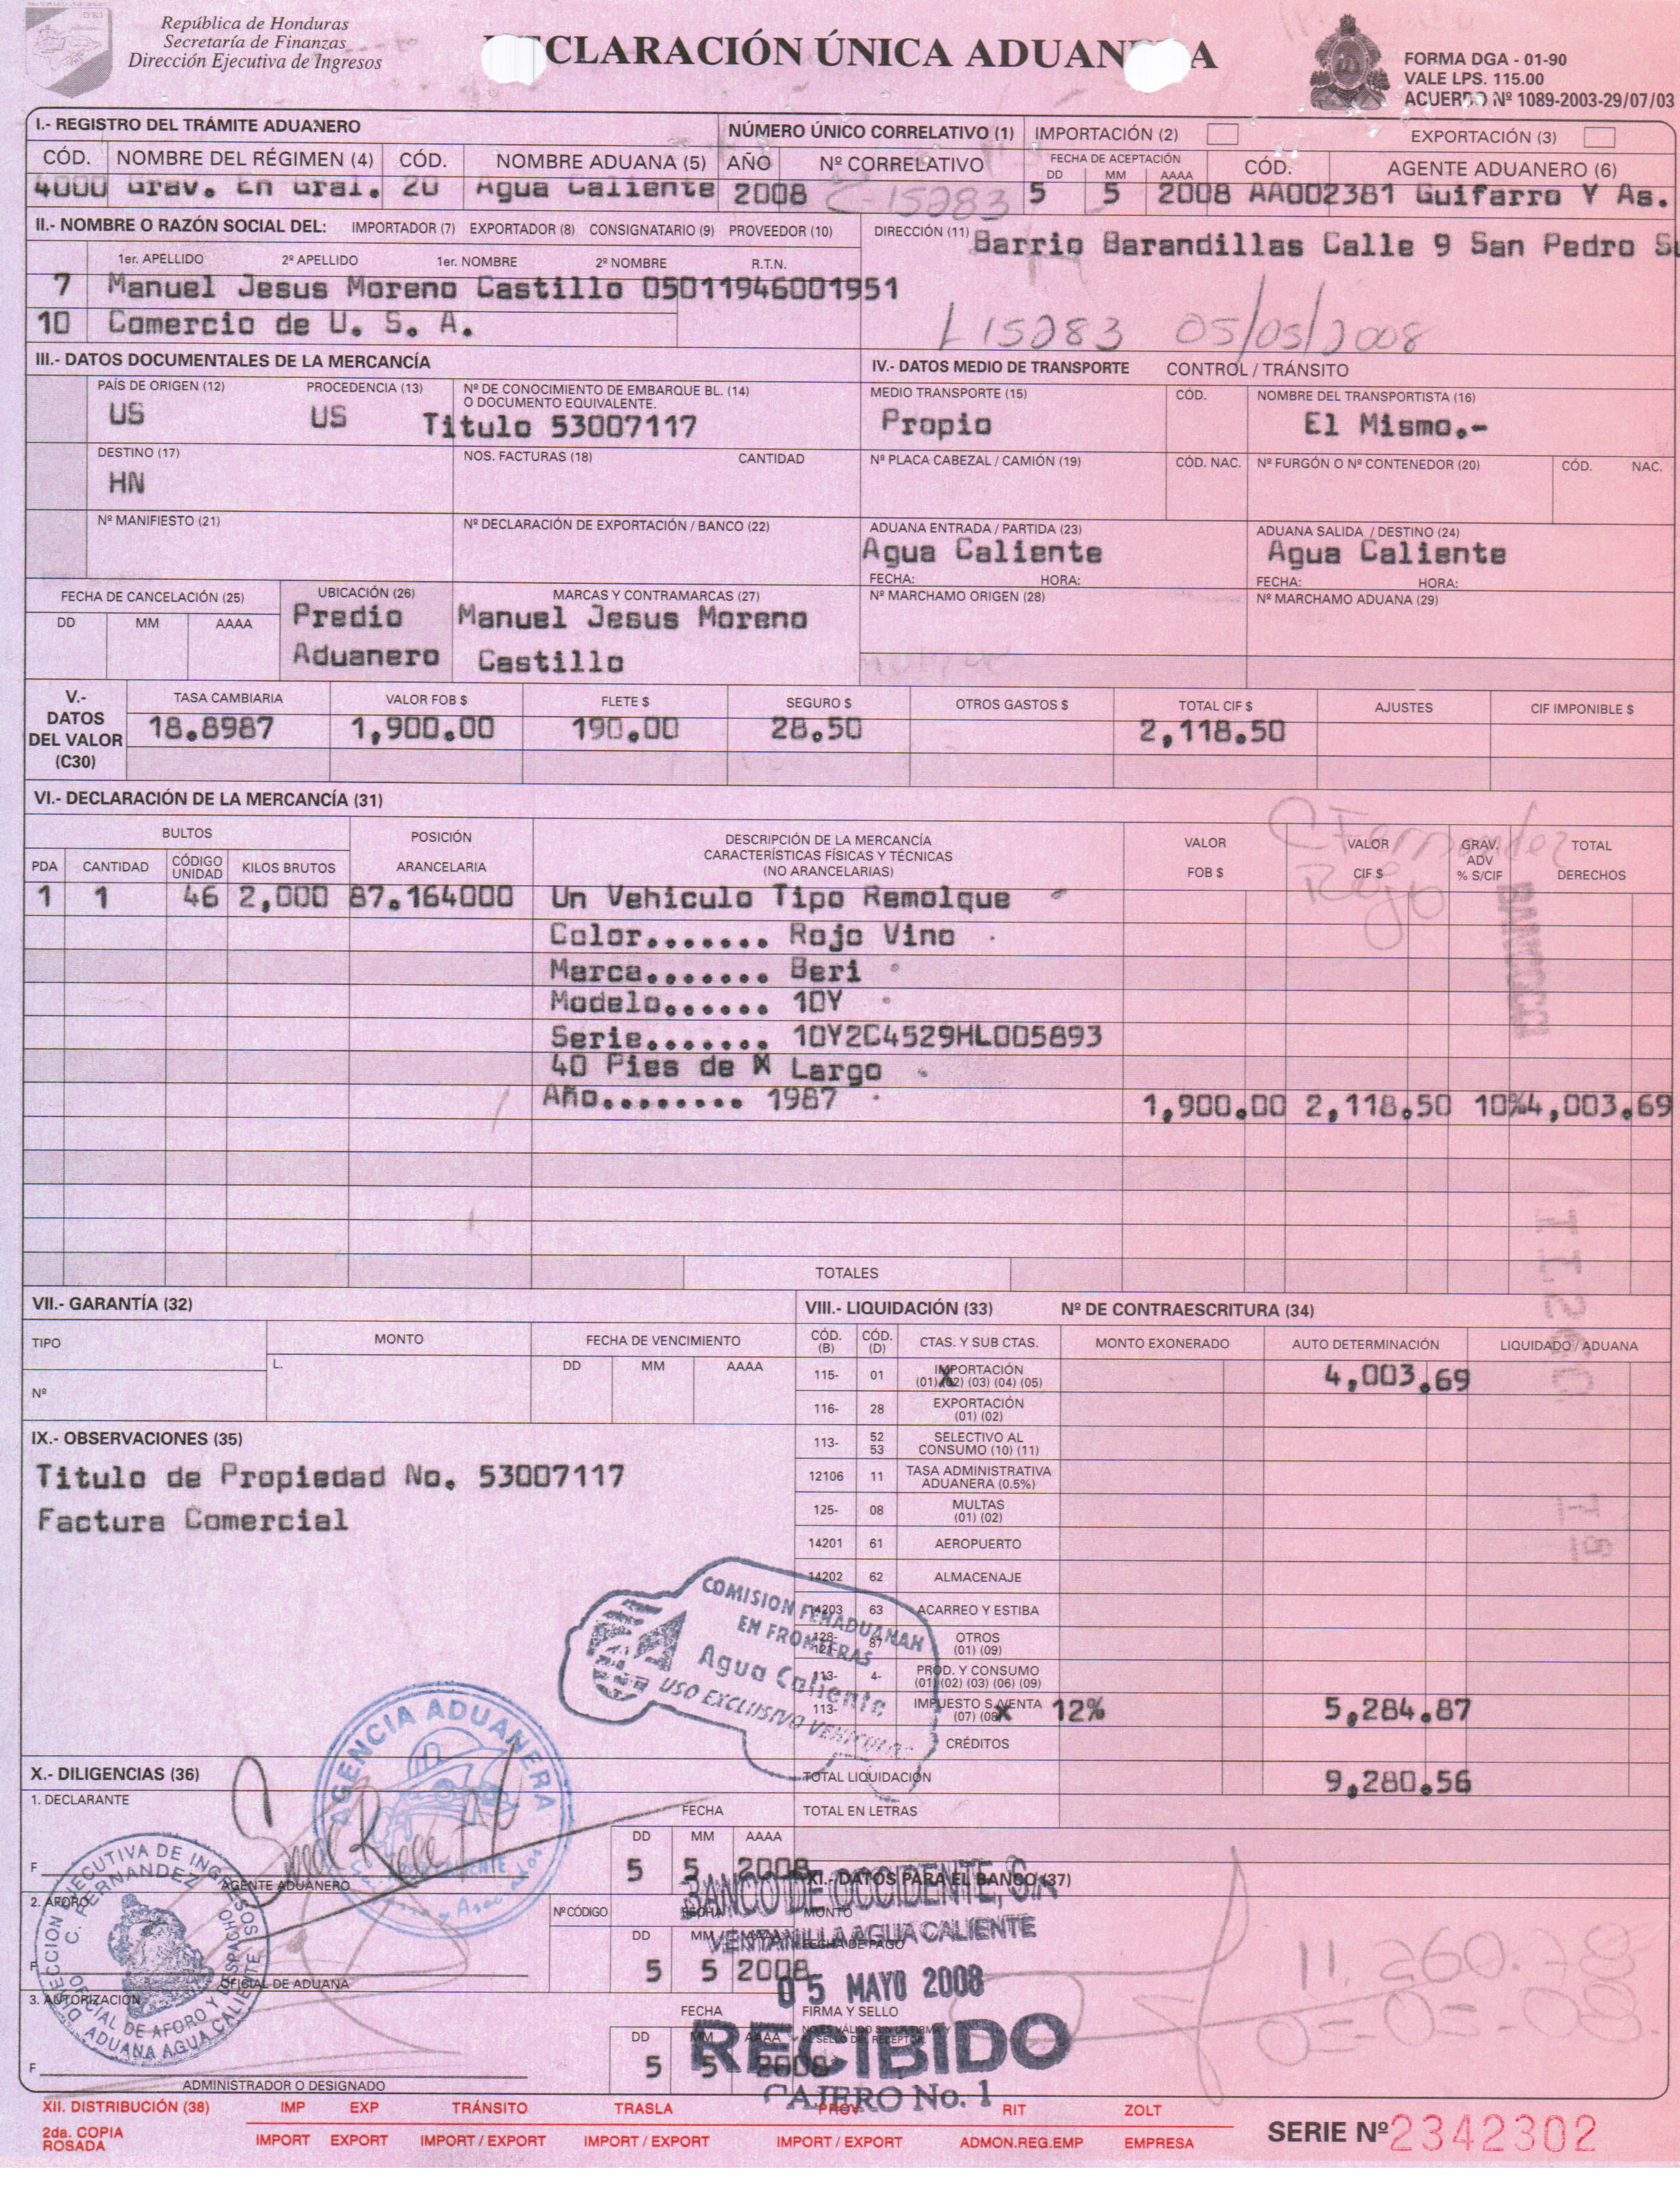 República de Honduras
Secretaría de Finanzas
Dirección Ejecutiva de Ingresos
CLARACIÓN ÚNICA ADUAN A
FORMA DGA - 01-90
VALE LPS. 115.00
ACUERDO Nº 1089-2003-29/07/03
I.- REGISTRO DEL TRÁMITE ADUANERO
NÚMERO ÚNICO CORRELATIVO (1) IMPORTACIÓN (2) EXPORTACIÓN (3)
CÓD. NOMBRE DEL RÉGIMEN (4) CÓD. NOMBRE ADUANA (5) AÑO Nº CORRELATIVO FECHA DE ACEPTACIÓN DD MM AAAA CÓD. AGENTE ADUANERO (6)
4000 Grav. En Gral. 20 Agua Caliente 2008 C-15283 5 5 2008 AA002381 Guifarro Y As.
II.- NOMBRE O RAZÓN SOCIAL DEL: IMPORTADOR (7) EXPORTADOR (8) CONSIGNATARIO (9) PROVEEDOR (10) DIRECCIÓN (11) Barrio Barandillas Calle 9 San Pedro S
1er. APELLIDO 2º APELLIDO 1er. NOMBRE 2º NOMBRE R.T.N.
7 Manuel Jesus Moreno Castillo 05011946001951
10 Comercio de U. S. A.
L15283 05/05/2008
III.- DATOS DOCUMENTALES DE LA MERCANCÍA
IV.- DATOS MEDIO DE TRANSPORTE CONTROL / TRÁNSITO
PAÍS DE ORIGEN (12) PROCEDENCIA (13) Nº DE CONOCIMIENTO DE EMBARQUE BL. (14) O DOCUMENTO EQUIVALENTE. MEDIO TRANSPORTE (15) CÓD. NOMBRE DEL TRANSPORTISTA (16)
US US Titulo 53007117 Propio El Mismo.-
DESTINO (17) NOS. FACTURAS (18) CANTIDAD Nº PLACA CABEZAL / CAMIÓN (19) CÓD. NAC. Nº FURGÓN O Nº CONTENEDOR (20) CÓD. NAC.
HN
Nº MANIFIESTO (21) Nº DECLARACIÓN DE EXPORTACIÓN / BANCO (22) ADUANA ENTRADA / PARTIDA (23) ADUANA SALIDA / DESTINO (24)
Agua Caliente Agua Caliente
FECHA: HORA: FECHA: HORA:
FECHA DE CANCELACIÓN (25) UBICACIÓN (26) MARCAS Y CONTRAMARCAS (27) Nº MARCHAMO ORIGEN (28) Nº MARCHAMO ADUANA (29)
DD MM AAAA Predio Manuel Jesus Moreno
Aduanero Castillo
V.- DATOS DEL VALOR (C30)
TASA CAMBIARIA VALOR FOB $ FLETE $ SEGURO $ OTROS GASTOS $ TOTAL CIF $ AJUSTES CIF IMPONIBLE $
18.8987 1,900.00 190.00 28.50 2,118.50
VI.- DECLARACIÓN DE LA MERCANCÍA (31)
C Fernandez
Rojo
BULTOS POSICIÓN ARANCELARIA DESCRIPCIÓN DE LA MERCANCÍA CARACTERÍSTICAS FÍSICAS Y TÉCNICAS (NO ARANCELARIAS) VALOR FOB $ VALOR CIF $ GRAV. ADV % S/CIF TOTAL DERECHOS
PDA CANTIDAD CÓDIGO UNIDAD KILOS BRUTOS
1 1 46 2,000 87.164000 Un Vehiculo Tipo Remolque
Color....... Rojo Vino
Marca....... Beri
Modelo...... 10Y
Serie....... 10Y2C4529HL005893
40 Pies de Largo
Año......... 1987 1,900.00 2,118.50 10% 4,003.69
TOTALES
VII.- GARANTÍA (32)
TIPO MONTO FECHA DE VENCIMIENTO
L. DD MM AAAA
Nº
VIII.- LIQUIDACIÓN (33) Nº DE CONTRAESCRITURA (34)
CÓD. (B) CÓD. (D) CTAS. Y SUB CTAS. MONTO EXONERADO AUTO DETERMINACIÓN LIQUIDADO / ADUANA
115- 01 IMPORTACIÓN (01) (02) (03) (04) (05) 4,003.69
116- 28 EXPORTACIÓN (01) (02)
113- 52 53 SELECTIVO AL CONSUMO (10) (11)
12106 11 TASA ADMINISTRATIVA ADUANERA (0.5%)
125- 08 MULTAS (01) (02)
14201 61 AEROPUERTO
14202 62 ALMACENAJE
14203 63 ACARREO Y ESTIBA
87 OTROS (01) (09)
113- 4- PROD. Y CONSUMO (01) (02) (03) (06) (09)
113- IMPUESTO S/VENTA (07) (08) x 12% 5,284.87
CRÉDITOS
TOTAL LIQUIDACIÓN 9,280.56
TOTAL EN LETRAS
IX.- OBSERVACIONES (35)
Titulo de Propiedad No. 53007117
Factura Comercial
COMISION FENADUANAH
EN FRONTERAS
Agua Caliente
USO EXCLUSIVO VEHICULOS
AGENCIA ADUANERA
X.- DILIGENCIAS (36)
1. DECLARANTE FECHA
DD MM AAAA
F 5 5 2008
AGENTE ADUANERO
XI.- DATOS PARA EL BANCO (37)
2. AFORO Nº CÓDIGO FECHA MONTO
DD MM AAAA FECHA DE PAGO
F 5 5 2008
OFICIAL DE ADUANA
3. AUTORIZACIÓN FECHA FIRMA Y SELLO
DD MM AAAA
F 5 5 2008
ADMINISTRADOR O DESIGNADO
DIRECCION EJECUTIVA DE INGRESOS
C. FERNANDEZ
OFICIAL DE AFORO Y DESPACHO
ADUANA AGUA CALIENTE
BANCO DE OCCIDENTE, S.A
VENTANILLA AGUA CALIENTE
05 MAYO 2008
RECIBIDO
CAJERO No. 1
11.260.78
XII. DISTRIBUCIÓN (38) IMP EXP TRÁNSITO TRASLA PROV RIT ZOLT
2da. COPIA ROSADA IMPORT EXPORT IMPORT / EXPORT IMPORT / EXPORT IMPORT / EXPORT ADMON.REG.EMP EMPRESA
SERIE Nº 2342302